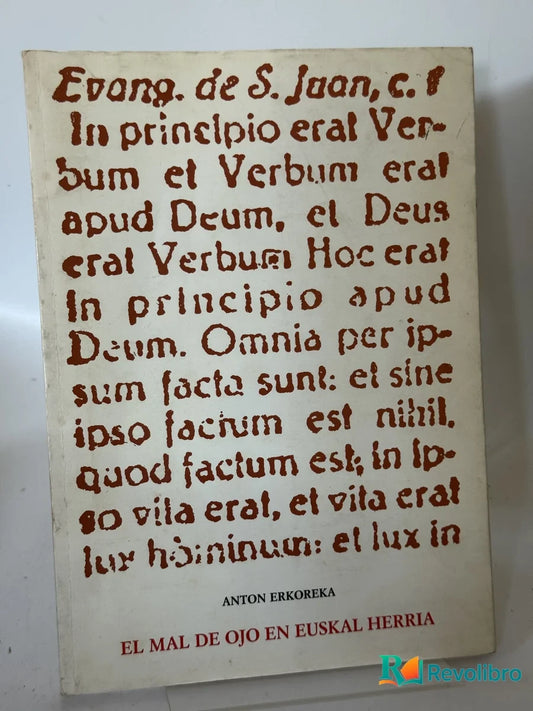 Evang. de S. Juan, c. 1
In principio erat Ver-
bum et Verbum erat
apud Deum, et Deus
erat Verbum Hoc erat
In principio apud
Deum. Omnia per ip-
sum facta sunt: et sine
ipso factum est nihil,
quod factum est; in ip-
so vita erat, et vita erat
lux hominum: et lux in
ANTON ERKOREKA
EL MAL DE OJO EN EUSKAL HERRIA
Revolibro